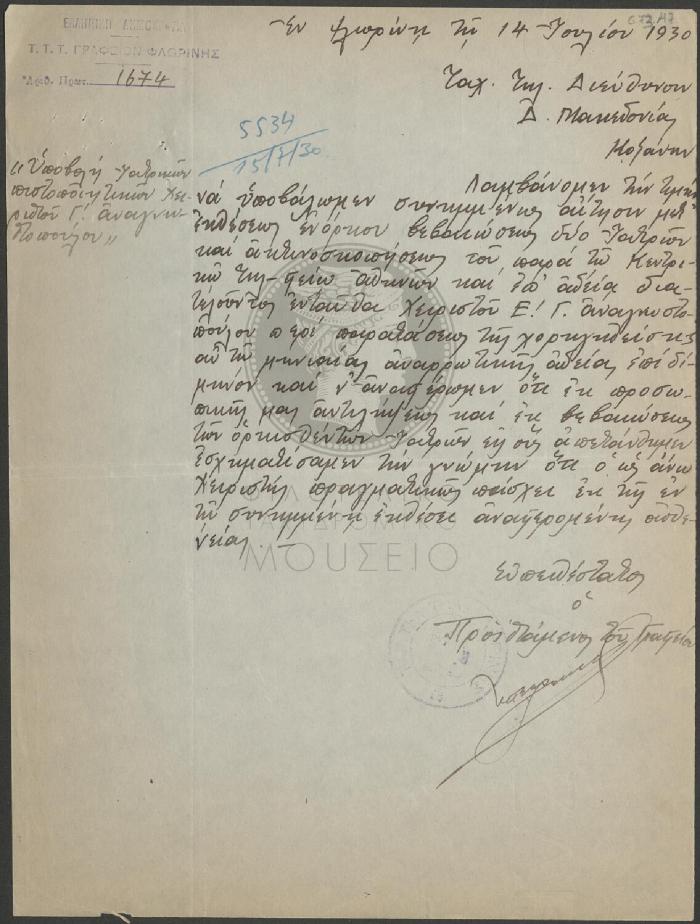 ΕΛΛΗΝΙΚΗ ΔΗΜΟΚΡΑΤΙΑ
Τ.Τ.Τ. ΓΡΑΦΕΙΟΝ ΦΛΩΡΙΝΗΣ
Ἀριθ. Πρωτ. 1674
672/47
Ἐν Φλωρίνῃ τῇ 14 Ἰουλίου 1930
Ταχ. Τηλ. Διεύθυνσιν
Δ. Μακεδονίας
Κοζάνην
5534
15/7/30
"Ὑποβολὴ Ἰατρικῶν
πιστοποιητικῶν Χει-
ριστοῦ Γ. Ἀναγνω-
στοπούλου"
Λαμβάνομεν τὴν τιμὴν
νά ὑποβάλωμεν συνημμένως αἴτησιν μετ'
ἐκθέσεως ἐνόρκου βεβαιώσεως δύο Ἰατρῶν
καί ἀκτινοσκοπήσεως τοῦ παρά τῷ Κεντρι-
κῷ Τηλ-φείῳ Ἀθηνῶν καί ἐπ' ἀδείᾳ δια-
τελοῦντος ἐνταῦθα Χειριστοῦ Ε! Γ. Ἀναγνωστο-
πούλου περί παρατάσεως τῆς χορηγηθείσης
αὐτῷ μηνιαίας ἀναρρωτικῆς ἀδείας ἐπί δί-
μηνον καί ν' ἀναφέρωμεν ὅτι ἐκ προσω-
πικῆς μας ἀντιλήψεως καί ἐκ βεβαιώσεως
τῶν ὁρκισθέντων Ἰατρῶν εἰς οὓς ἀπετάνθημεν
ἐσχηματίσαμεν τήν γνώμην ὅτι ὁ ὡς ἄνω
Χειριστής πραγματικῶς πάσχει ἐκ τῆς ἐν
τῇ συνημμένῃ ἐκθέσει ἀναφερομένης ἀσθε-
νείας.
ΜΟΥΣΕΙΟ
Εὐπειθέστατος
ὁ
Προϊστάμενος τοῦ Γραφείου